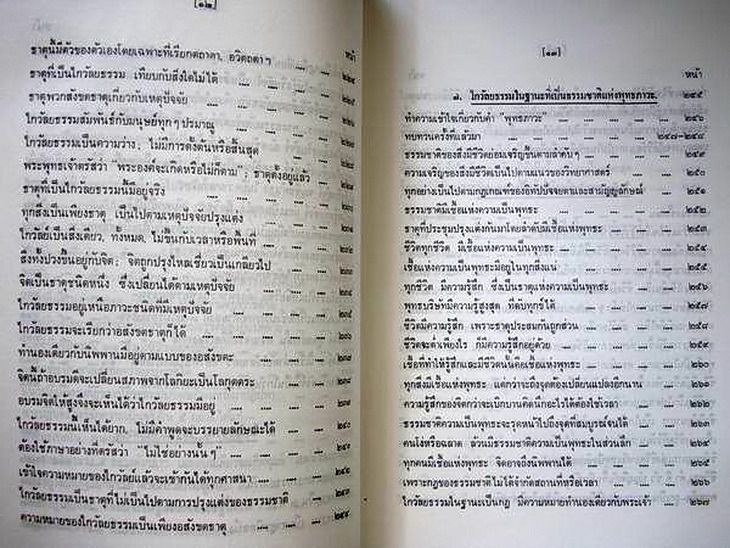 [๑๒]
หน้า
ธาตุนี้มีตัวของตัวเองโดยเฉพาะที่เรียกตถาตา, อวิตถตา ฯ
ธาตุที่เป็นไกวัลยธรรม เทียบกับสิ่งใดไม่ได้
ธาตุพวกสังขตธาตุเกี่ยวกับเหตุปัจจัย
ไกวัลยธรรมสัมพันธ์กับมนุษย์ทุก ๆ ปรมาณู
ไกวัลยธรรมเป็นความว่าง; ไม่มีการตั้งต้นหรือสิ้นสุด
พระพุทธเจ้าตรัสว่า "พระองค์จะเกิดหรือไม่ก็ตาม"; ธาตุตั้งอยู่แล้ว
ธาตุที่เป็นไกวัลยธรรมนี้มีอยู่จริง
ทุกสิ่งเป็นเพียงธาตุ เป็นไปตามเหตุปัจจัยปรุงแต่ง
ไกวัลย์เป็นสิ่งเดียว, ทั้งหมด, ไม่ขึ้นกับเวลาหรือพื้นที่
สิ่งทั้งปวงขึ้นอยู่กับจิต; จิตถูกปรุงไหลเชี่ยวเป็นเกลียวไป
จิตเป็นธาตุชนิดหนึ่ง ซึ่งเปลี่ยนได้ตามเหตุปัจจัย
ไกวัลยธรรมอยู่เหนือภาวะชนิดที่มีเหตุปัจจัย
ไกวัลยธรรมจะเรียกว่าอสังขตธาตุก็ได้
ทำนองเดียวกับนิพพานมีอยู่ตามแบบของอสังขตะ
จิตนี้ถ้าอบรมดีจะเปลี่ยนสภาพจากโลกิยะเป็นโลกุตตระ
อบรมจิตให้สูงจึงจะเห็นได้ว่าไกวัลยธรรมมีอยู่
ไกวัลยธรรมนี้เห็นได้ยาก, ไม่มีคำพูดจะบรรยายลักษณะได้
ต้องใช้ภาษาอย่างที่ตรัสว่า "ไม่ใช่อย่างนั้น ๆ"
เข้าใจความหมายของไกวัลย์แล้วจะเข้ากันได้ทุกศาสนา
ไกวัลยธรรมเป็นธาตุที่ไม่เป็นไปตามการปรุงแต่งของธรรมชาติ
ความหมายของไกวัลยธรรมเป็นเพียงอสังขตธาตุ
[๑๓]
หน้า
๗. ไกวัลยธรรมในฐานะที่เป็นธรรมชาติแห่งพุทธภาวะ. ๒๔๕
ทำความเข้าใจเกี่ยวกับคำ "พุทธภาวะ" .... .... .... .... ๒๔๖
ทบทวนครั้งที่แล้วมา .... .... .... .... ๒๔๗-๒๔๘
ธรรมชาติของสิ่งมีชีวิตยอมเจริญขึ้นตามลำดับ ๆ .... .... .... ๒๔๙
ความเจริญของสิ่งมีชีวิตเป็นไปตามแนวของวิทยาศาสตร์ .... .... ๒๕๐
ทุกอย่างเป็นไปตามกฎเกณฑ์ของอิทัปปัจจยตาและสามัญญลักษณ์ .... ๒๕๑
ธรรมชาติมีเชื้อแห่งความเป็นพุทธะ .... .... .... .... ๒๕๒
ธาตุที่ประชุมปรุงแต่งกันมาโดยลำดับมีเชื้อพุทธะ .... .... .... ๒๕๓
ชีวิตทุกชีวิต มีเชื้อความเป็นพุทธะ .... .... .... .... ๒๕๔
เชื้อแห่งความเป็นพุทธะมีอยู่ในทุกสิ่งแน่ .... .... .... .... ๒๕๕
ทุกชีวิต มีความรู้สึก ซึ่งเป็นธาตุแห่งความเป็นพุทธะ .... .... .... ๒๕๖
พุทธบริษัทมีความรู้สูงสุด ที่ดับทุกข์ได้ .... .... .... .... ๒๕๗
ชีวิตมีความรู้สึก เพราะธาตุประสมกันถูกส่วน .... .... .... ๒๕๘
ชีวิตจะต่ำเพียงไร ก็มีความรู้สึกอยู่ด้วย .... .... .... .... ๒๕๙
เชื้อที่ทำให้รู้สึกและมีชีวิตนั้นคือเชื้อพุทธะ .... .... .... .... ๒๖๐
ทุกสิ่งมีเชื้อแห่งพุทธะ แต่กว่าจะถึงจุดต้องเปลี่ยนแปลงอีกนาน .... ๒๖๑
ความรู้สึกของจิตกว่าจะเบิกบานคิดนึกอะไรได้ต้องใช้เวลา .... .... ๒๖๒
เพราะเชื้อแห่งความเป็นพุทธะจะรุดหน้าไปถึงจุดที่สมบูรณ์จนได้ .... ๒๖๓
คนโง่หรือฉลาด ล้วนมีธรรมชาติความเป็นพุทธะในส่วนลึก .... .... ๒๖๔
ทุกคนมีเชื้อแห่งพุทธะ จิตอาจถึงนิพพานได้ .... .... .... ๒๖๕
เพราะกฎของธรรมชาติไม่ได้จำกัดสถานที่หรือเวลา .... .... .... ๒๖๖
ไกวัลยธรรมในฐานะเป็นกฎ มีความหมายทำนองเดียวกับพระเจ้า .... ๒๖๗